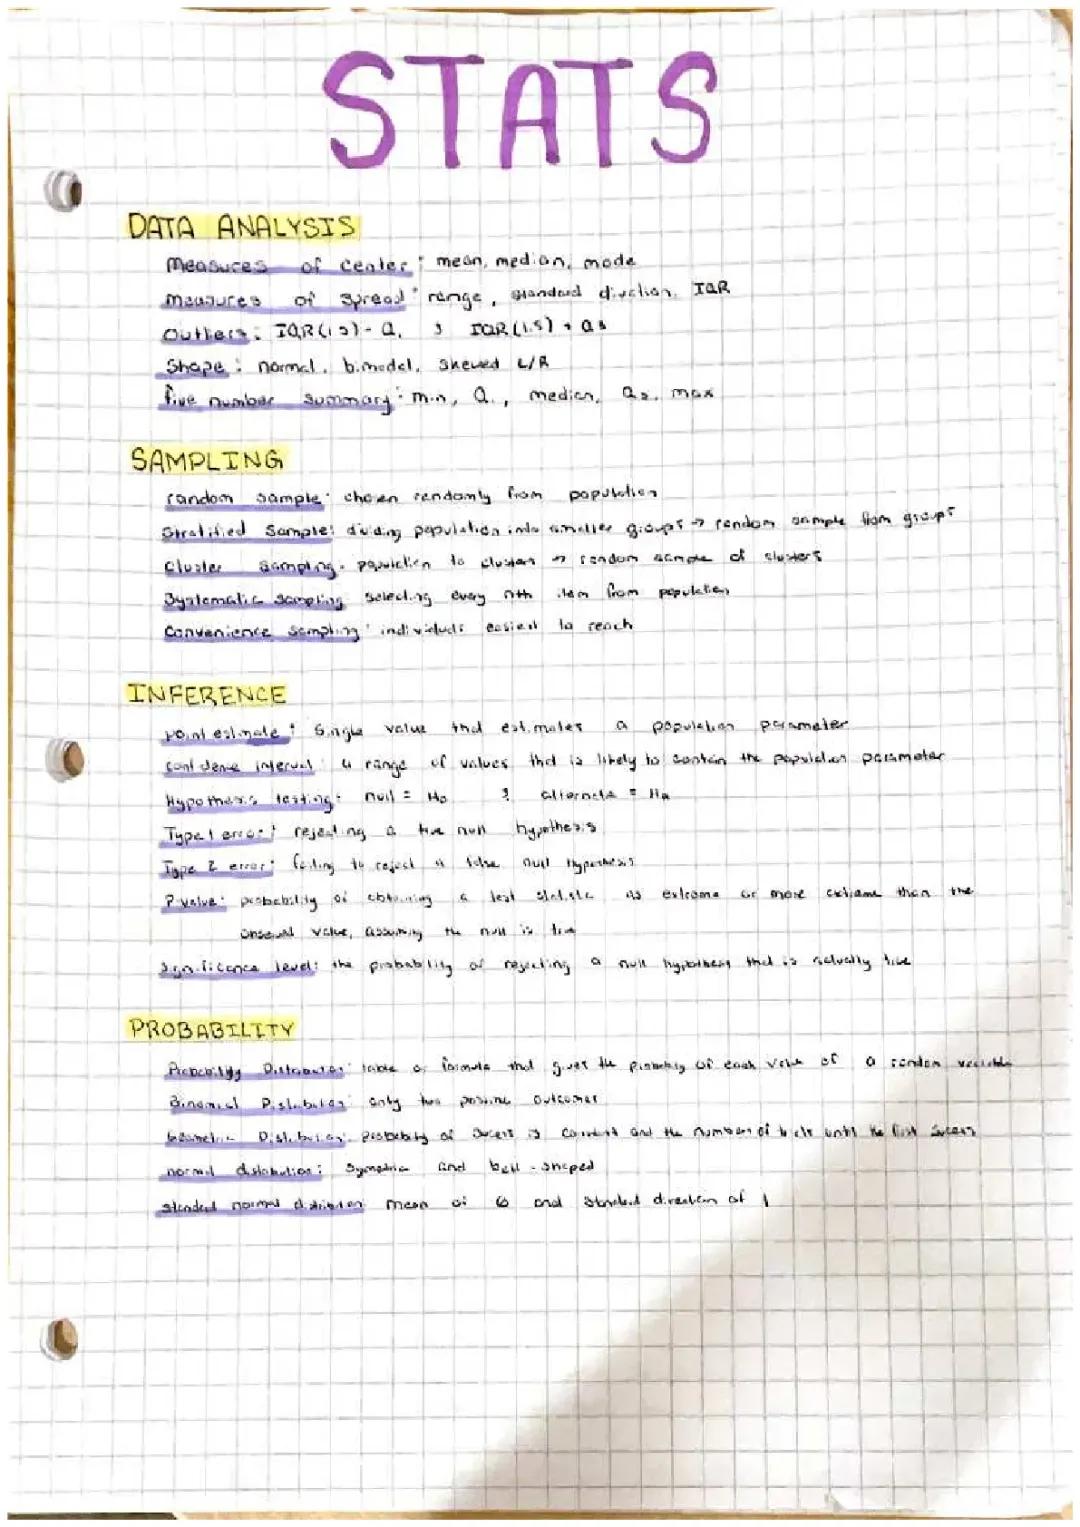 STATS
DATA ANALYSIS
Measures of center: mean, median, mode
measures of spread: range, standard diviation, IQR
Outliers: IQR(1.5) - Q1 ; IQR(1.5) + Q3
Shape: normal, bimodel, skewed L/R
five number summary: min, Q1, median, Q3, max
SAMPLING
random sample: chosen randomly from population
Stratified Sample: dividing population into smaller groups → random sample from groups
Cluster sampling: population to clusters → random sample of clusters
Systematic sampling: selecting every nth item from population
Convenience sampling: individuals easiest to reach
INFERENCE
point estimate: single value that estimates a population parameter
confidence interval: a range of values that is likely to contain the population parameter
Hypothesis testing: null = Ho & alternate = Ha
Type 1 error: rejecting a true null hypothesis
Type 2 error: failing to reject a false null hypothesis
P-value: probability of obtaining a test statistic as extreme or more extreme than the
value, assuming the null is true
significance level: the probability of rejecting a null hypothesis that is actually true
PROBABILITY
Probability Distribution: table or formula that gives the probability of each value of a random variable
Binomial Distribution: only two possible outcomes
Geometric Distribution: probability of success is constant and the number of trials until the first success
normal distribution: symmetric and bell-shaped
standard normal distribution: mean of 0 and standard of 1